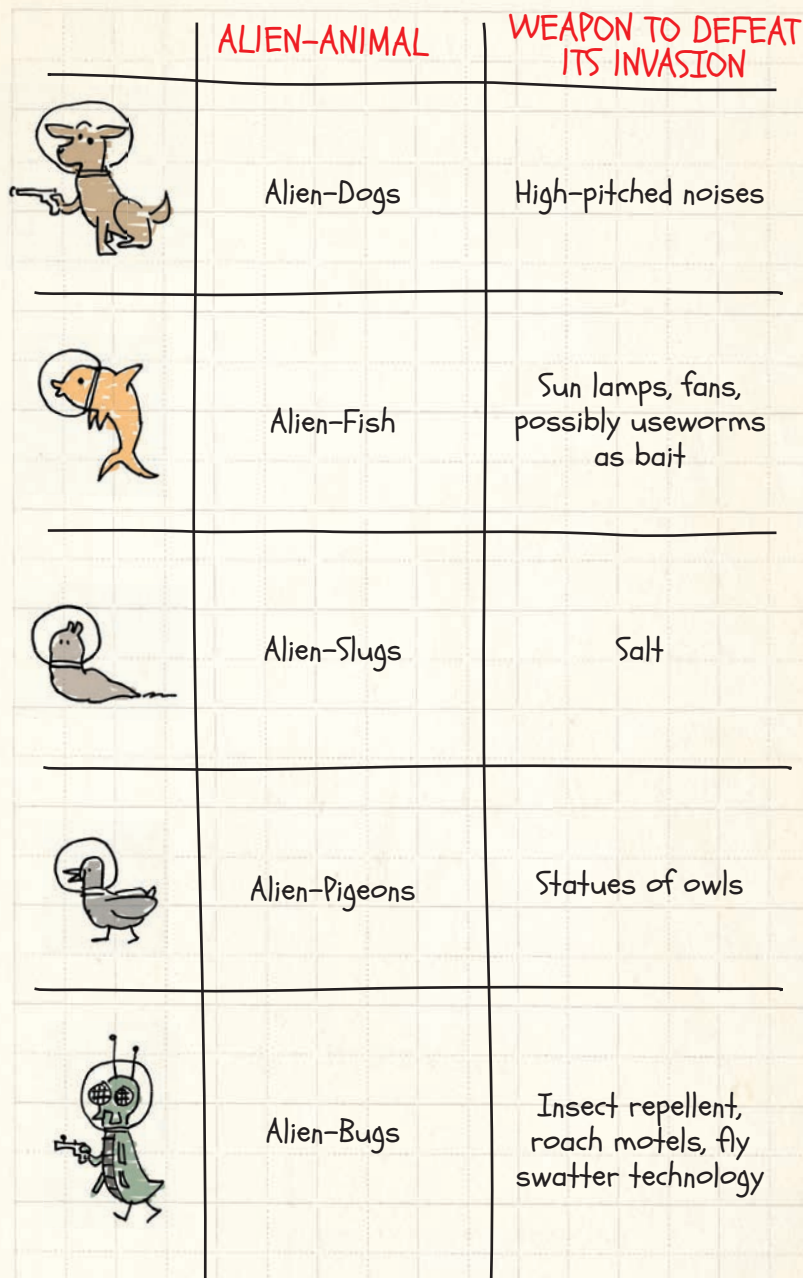 ALIEN-ANIMAL
WEAPON TO DEFEAT
ITS INVASION
Alien-Dogs
High-pitched noises
Alien-Fish
Sun lamps, fans,
possibly useworms
as bait
Alien-Slugs
Salt
Alien-Pigeons
Statues of owls
Alien-Bugs
Insect repellent,
roach motels, fly
swatter technology